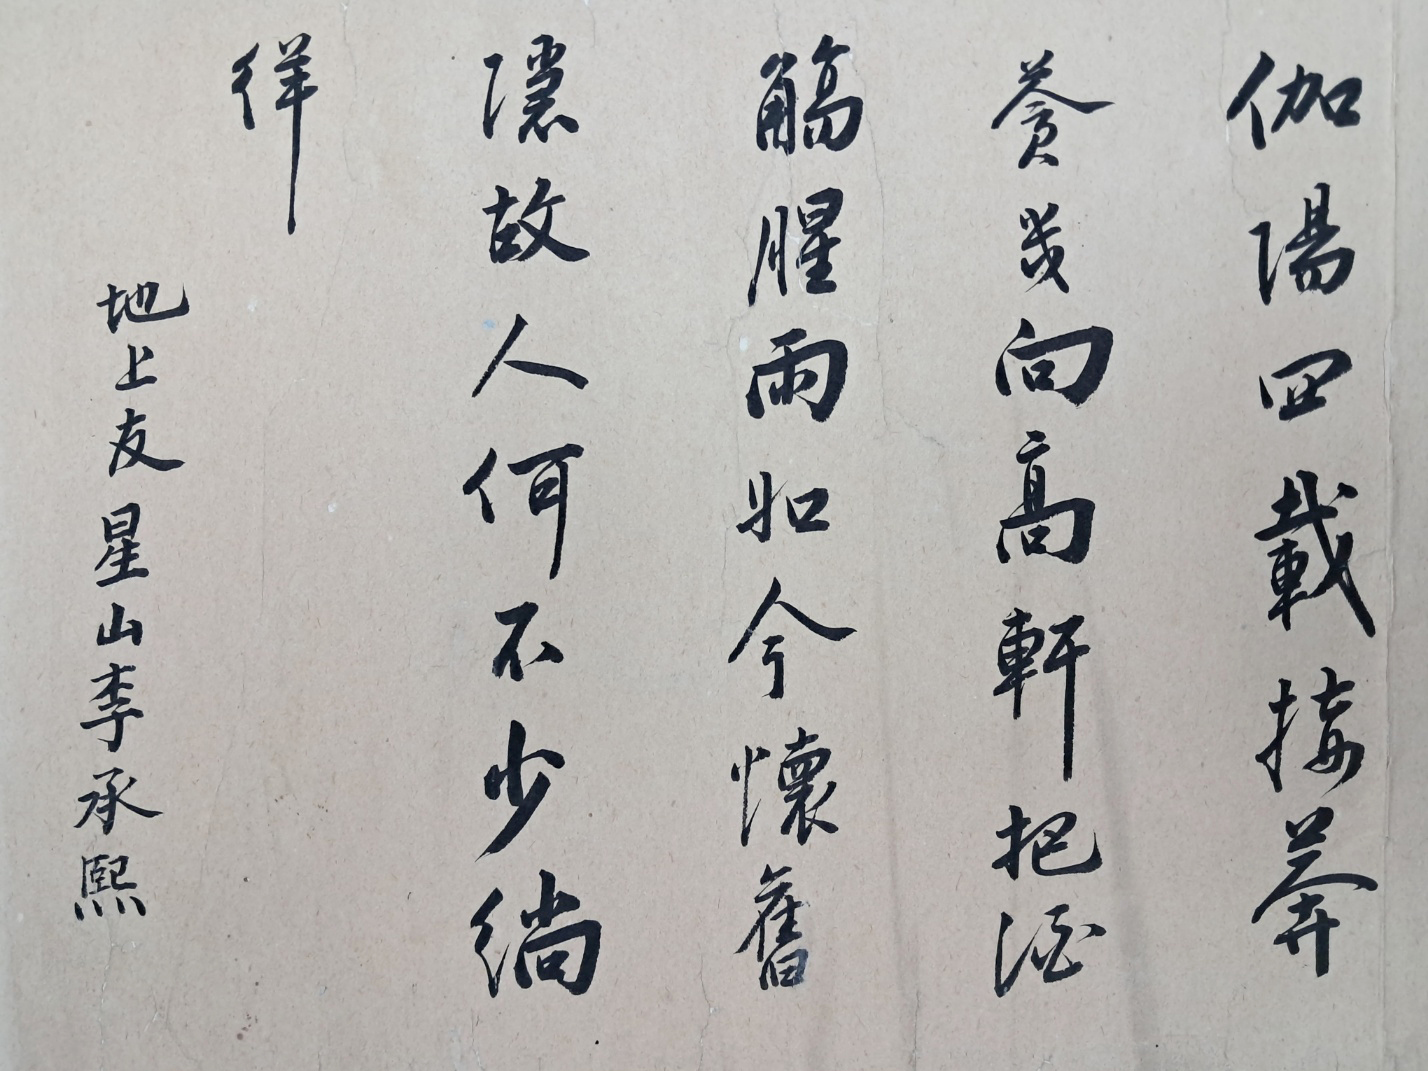 伽陽四載接莽
蒼幾向高軒把酒
觴腥雨如今懷舊
隱故人何不少徜
徉
地上友星山李承熙